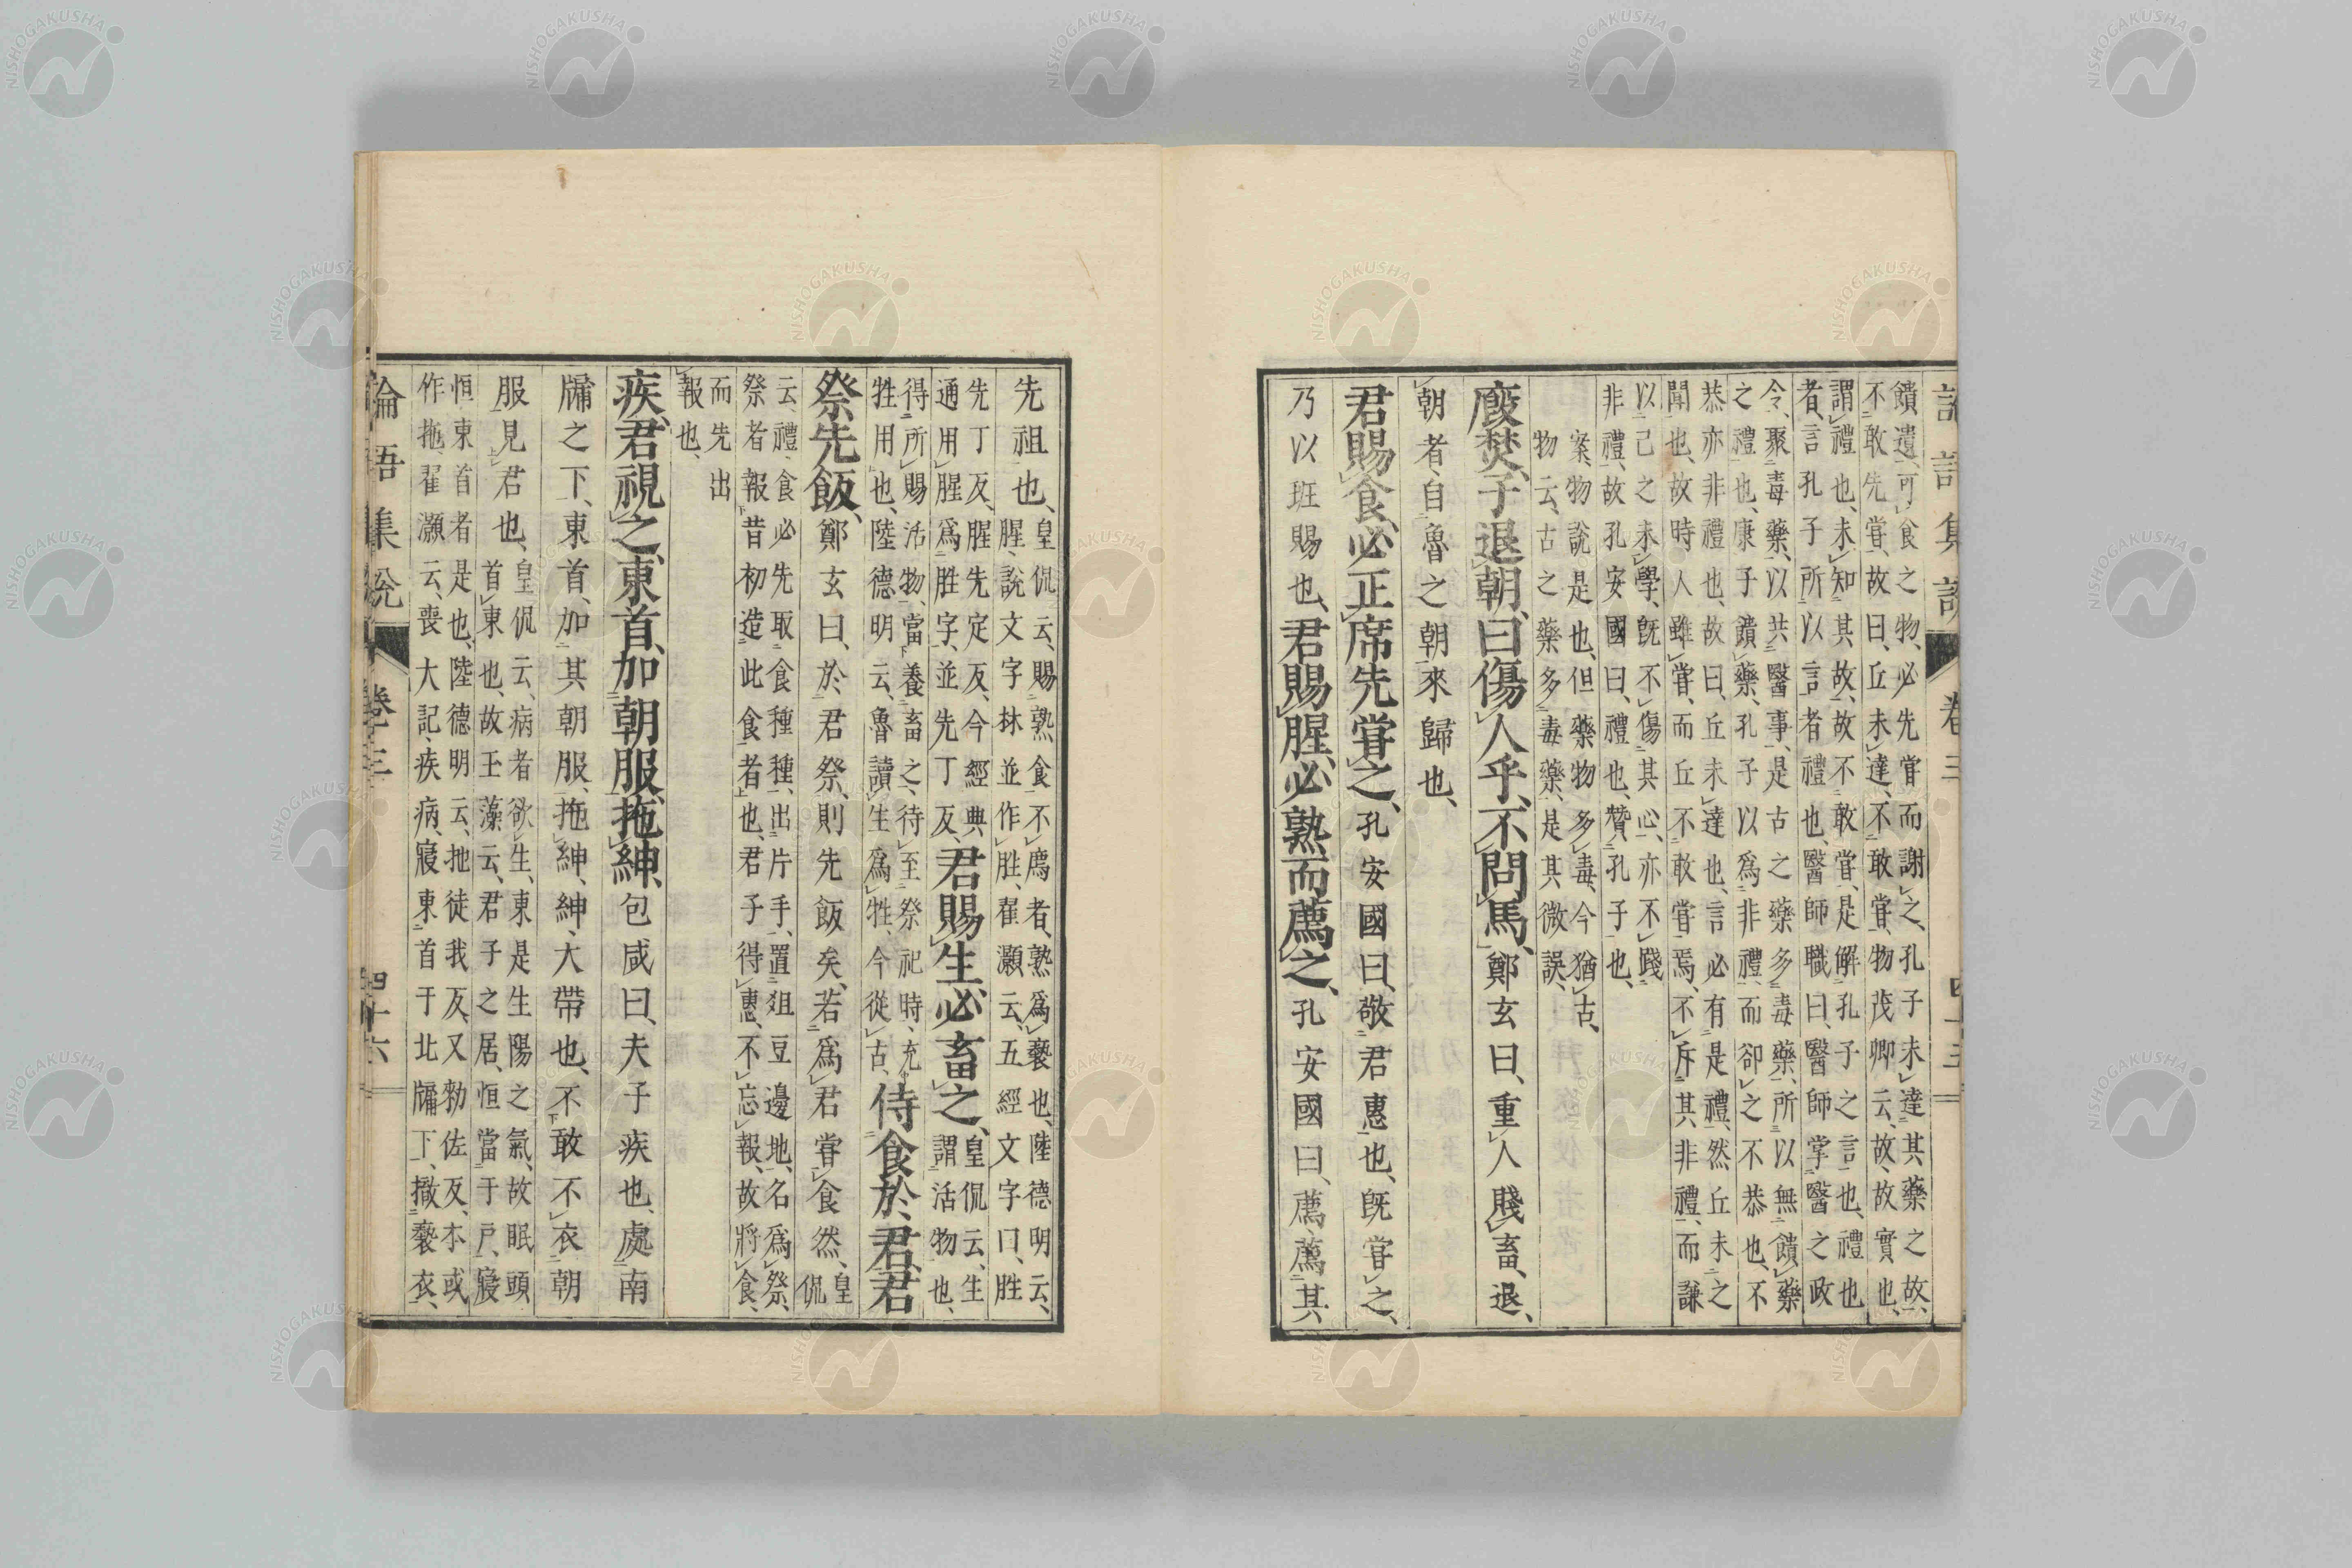 饋遺、可食之物、必先甞而謝之、孔子未達其藥之故、
不敢先甞、故曰、丘未達、不敢甞、物茂卿云、故、故實也、
謂禮也、未知其故、故不敢甞、是解孔子之言也、禮也
者、言孔子所以言者禮也、醫師職曰、醫師掌醫之政
令、聚毒藥、以共醫事、是古之藥多毒藥、所以無饋藥
之禮也、康子饋藥、孔子以爲非禮、而卻之不恭也、不
恭亦非禮也、故曰、丘未達也、言必有是禮、然丘未之
聞也、故時人雖甞、而丘不敢甞焉、不斥其非禮、而謙
以己之未學、既不傷其心、亦不賤
非禮、故孔安國曰、禮也、贊孔子也、
案、物說是也、但藥物多毒、今猶古、
物云、古之藥多毒藥、是其微誤、
廄焚、子退朝、曰傷人乎、不問馬、鄭玄曰、重人賤畜、退、
朝者、自魯之朝來歸也、
君賜食、必正席先甞之、孔安國曰、敬君惠也、既甞之、
乃以班賜也、君賜腥、必熟而薦之、孔安國曰、薦、薦其
先祖也、皇侃云、賜熟食不薦者、熟爲褻也、陸德明云、
腥、說文字林並作胜、翟灝云、五經文字曰、胜
先丁反、腥先定反、今經典
通用腥爲胜字、並先丁反、君賜生必畜之、皇侃云、生
謂活物也、
得所賜活物、當養畜之、待至祭祀時、充
牲用也、陸德明云、魯讀生爲牲、今從古、侍食於君、君
祭先飯、鄭玄曰、於君祭、則先飯矣、若爲君甞食然、皇侃
云、禮食必先取食種種、出片手、置俎豆邊地、名爲祭、
祭者報昔初造此食者也、君子得惠、不忘報、故將食、
而先出
報也、
疾、君視之、東首、加朝服、拖紳、包咸曰、夫子疾也、處南
牖之下、東首、加其朝服、拖紳、紳、大帶也、不敢不衣朝
服見君也、皇侃云、病者欲生、東是生陽之氣、故眠頭
首東也、故玉藻云、君子之居、恒當于戶、寢
恒東首者是也、陸德明云、扡徒我反、又勑佐反、本或
作拖、翟灝云、喪大記、疾病、寢東首于北牖下、撤褻衣、
論語集說 卷三 四十六